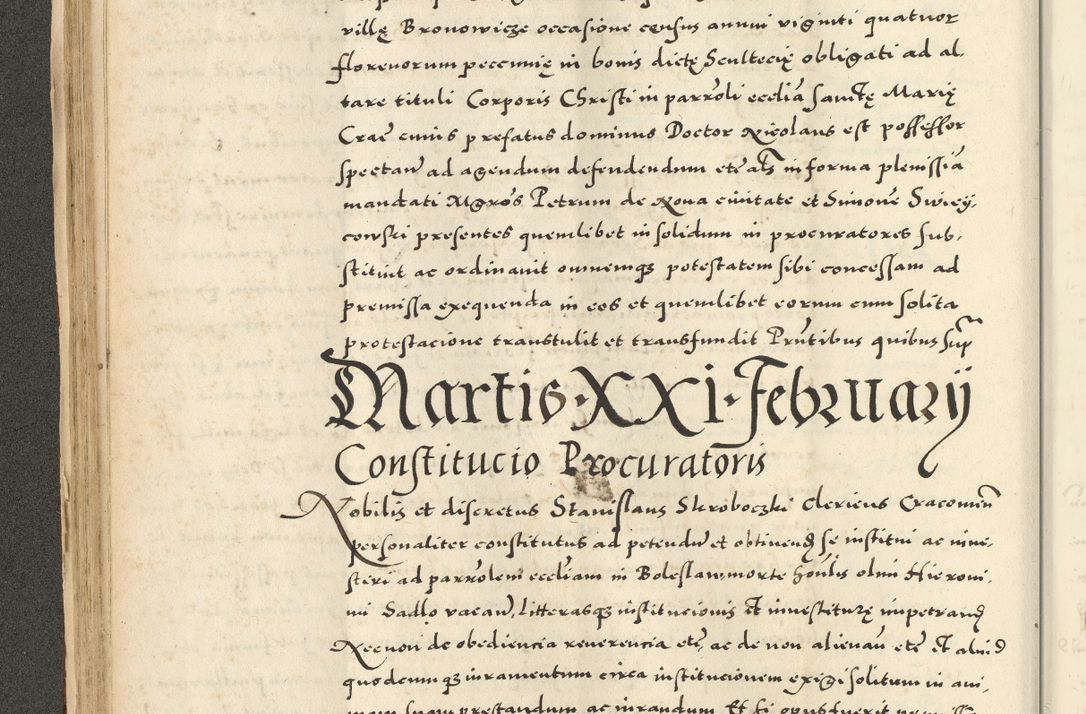 villę Bronowicze occasione census annui viginti quatuor
florenorum peccunię in bonis dictę Scultecię obligati ad al-
tare tituli Corporis Christi in parroli ecclia sanctę Marię
Crac̄ cuius prefatus dominus Doctor Nicolaus est possessor
spectan̄ ad agendum defendendum etc̄ als in forma plenissia
mandati Mgros Petrum de Nova civitate et Simonē Swiey-
cowski presentes quemlibet in solidum in procuratores sub-
stituit ac ordinavit omnemqꝫ potestatem sibi concessam ad
premissa exequenda in eos et quemlibet eorum cum solita
protestacione transtulit et transfundit Prntibus quibus sup
Martis · XXI · February
Constitucio Procuratoris
Nobilis et discretus Stanislaus Skroboczki Clericus Cracovien̄
personaliter constitutus ad petendū et obtinend se institui ac inve-
stiri ad parrolem eccliam in Boleslaw morte honlis olim Hieroni-
mi Sadlo vacan̄, litterasqꝫ institucionis et investiturę impetrand
Necnon de obediencia reverencia etc̄, ac de non alienan̄ etc̄ et aliud
quodcumqꝫ iuramentum circa institucionem exigi solitum in ani-
mam suam prestandum ac iurandum Et si opus fuerit